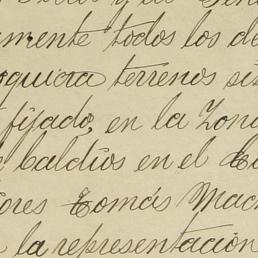 amente todos los de
oquiera terrenos sis
fijado, en la Zona
baldíos en el
ores Tomás Mac
la representación